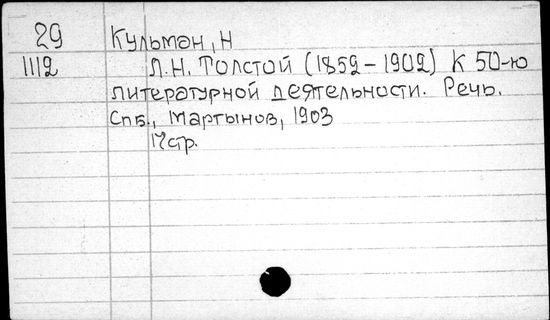 29 Кульман, Н
1112 Л.Н. Толстой (1852-1902) К 50-ю
литературной деятельности. Речь.
Спб., Мартынов, 1903
17стр.